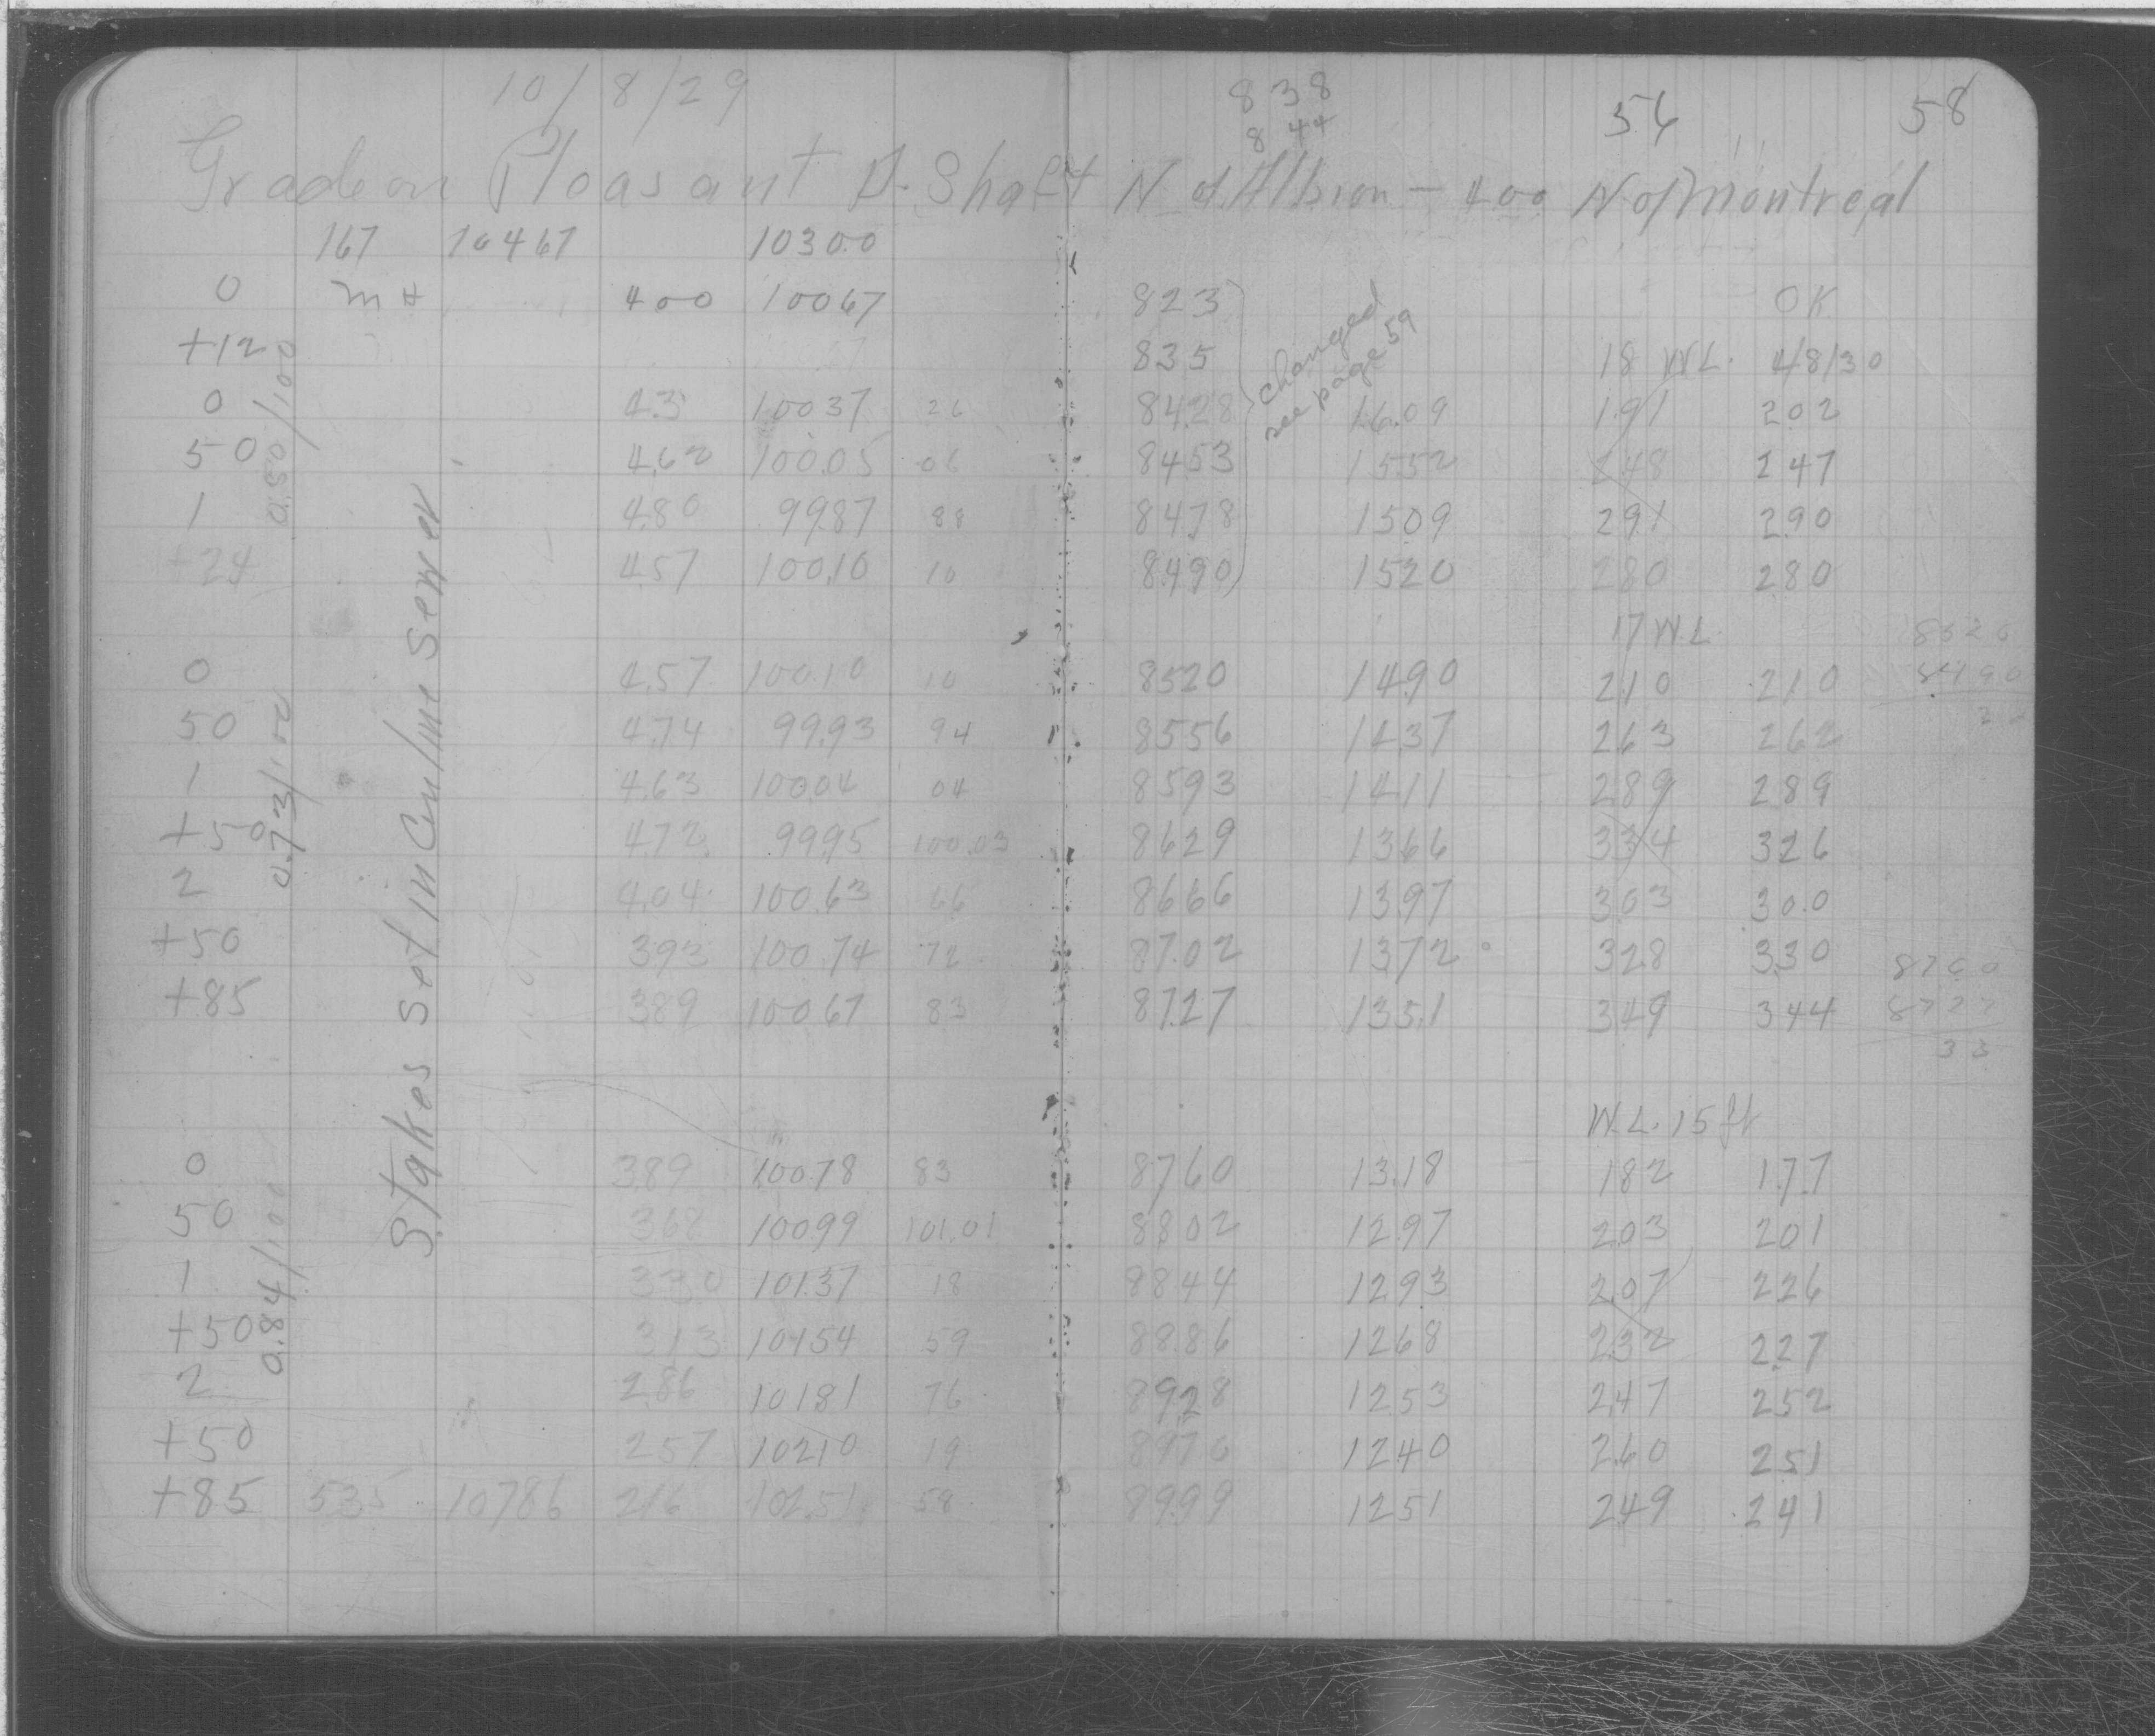 10/8/29 838 56 58
8 44
Grade on Pleasant D. Shaft N of Albion - 400 N of Montreal
167 10467 10300
0 mt 400 10067 823 OK
+12 835 18 W.L. 4/8/30
0 43 10037 26 8428 16.09 191 202
50 462 100.05 06 8453 1552 248 247
1 480 9987 88 8478 1509 291 290
+24 457 100.10 10 8490 1520 280 280
changed
see page 59
0.50/100
17 W.L. 8520
0 457 100.10 10 8520 1490 210 210 8490
50 474 99.93 94 8556 1437 263 262 30
1 463 10004 04 8593 1411 289 289
+50 472 9995 100.03 8629 1366 334 326
2 404 100.63 66 8666 1397 303 300
+50 393 100.74 72 87.02 1372 328 330 8760
+85 389 10067 83 87.27 1351 349 344 8727
33
0.73/100
Stakes Set in Cen/line Sewer
W.L. 15 ft
0 389 10078 83 8760 13.18 182 177
50 368 10099 101.01 8802 1297 203 201
1 330 10137 18 8844 1293 207 226
+50 313 10154 59 8886 1268 232 227
2 286 10181 76 8928 1253 247 252
+50 257 10210 19 8970 1240 260 251
+85 535 10786 216 102.51 58 8999 1251 249 241
0.84/100